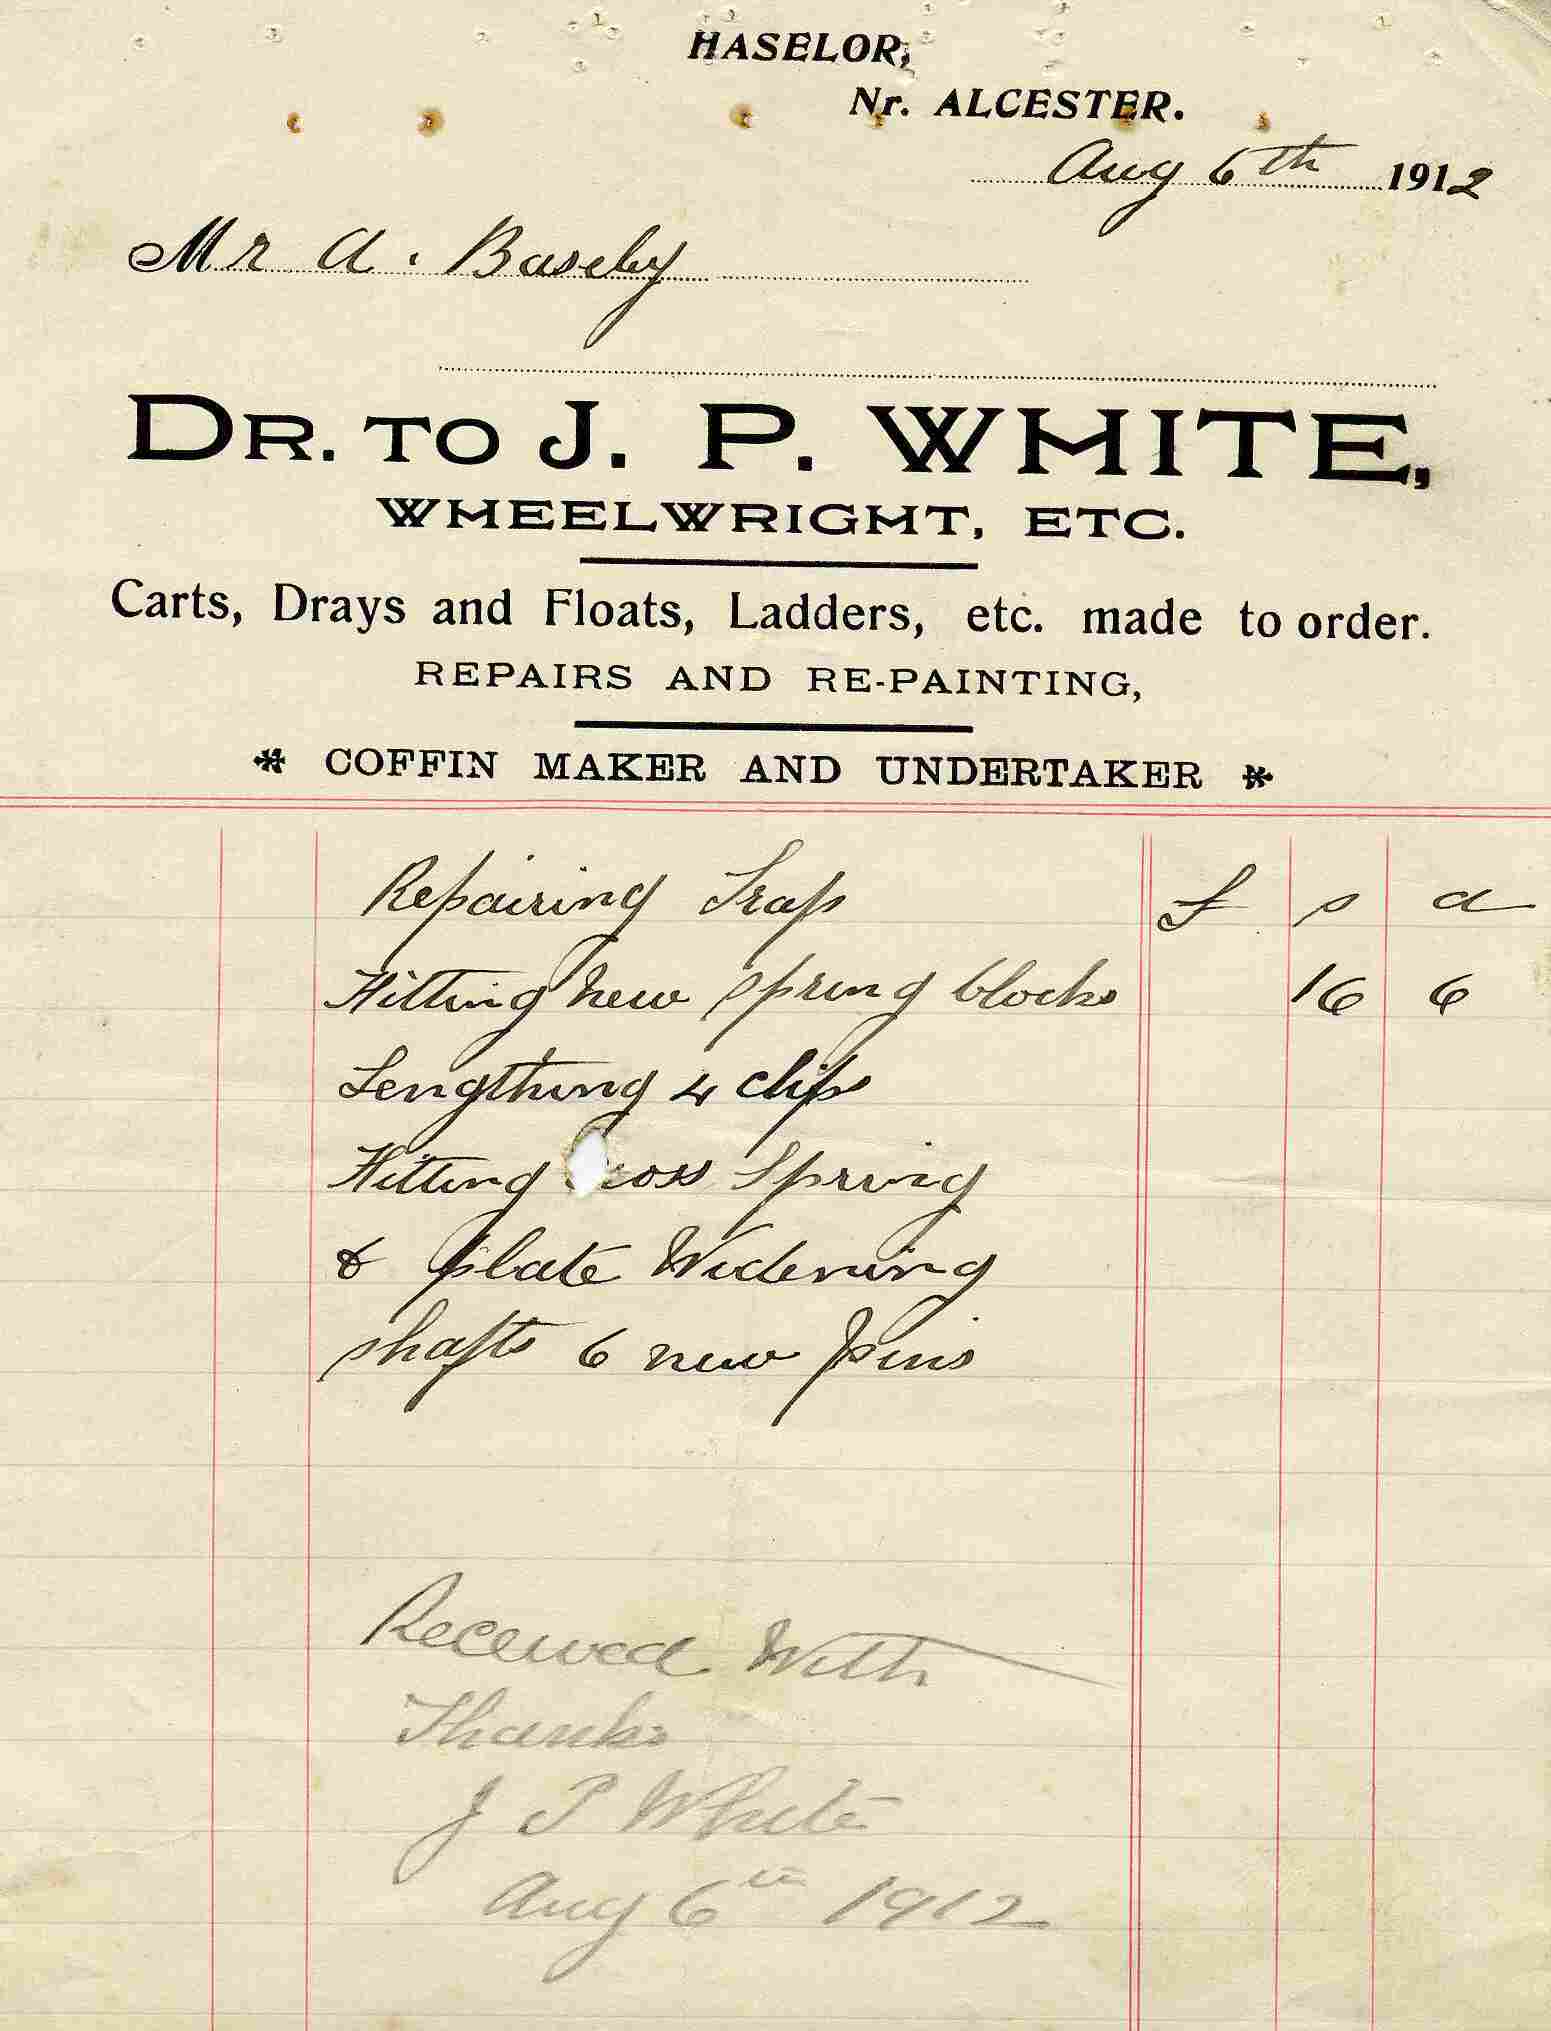 HASELOR,
Nr. ALCESTER.
Aug 6th 1912
Mr A. Baseby
DR. TO J. P. WHITE,
WHEELWRIGHT, ETC.
Carts, Drays and Floats, Ladders, etc. made to order.
REPAIRS AND RE-PAINTING,
* COFFIN MAKER AND UNDERTAKER *
Repairing Trap £ s d
Fitting new spring blocks 16 6
Lengthing 4 clips
Fitting Spring
& plate Widening
shafts 6 new pins
Received With
Thanks
J P White
Aug 6th 1912